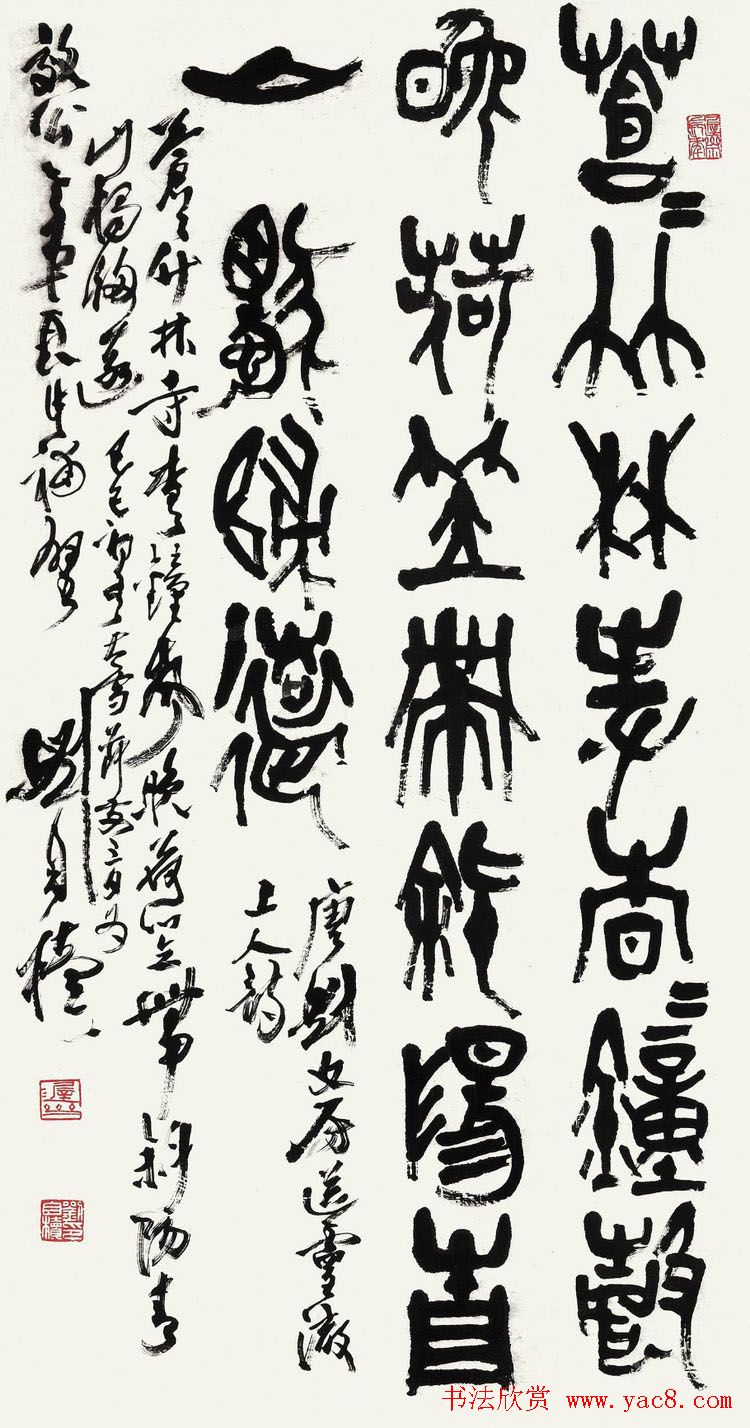 蒼〻竹林寺杳〻鐘聲
晚荷笠帶斜陽青
山獨歸遠
唐劉文房送靈澈
上人詩
蒼〻竹林寺杳〻鐘聲晚荷笠帶斜陽青
山獨歸遠 己巳 大雪節 三日為
劉自櫝
书法欣赏 www.yac8.com